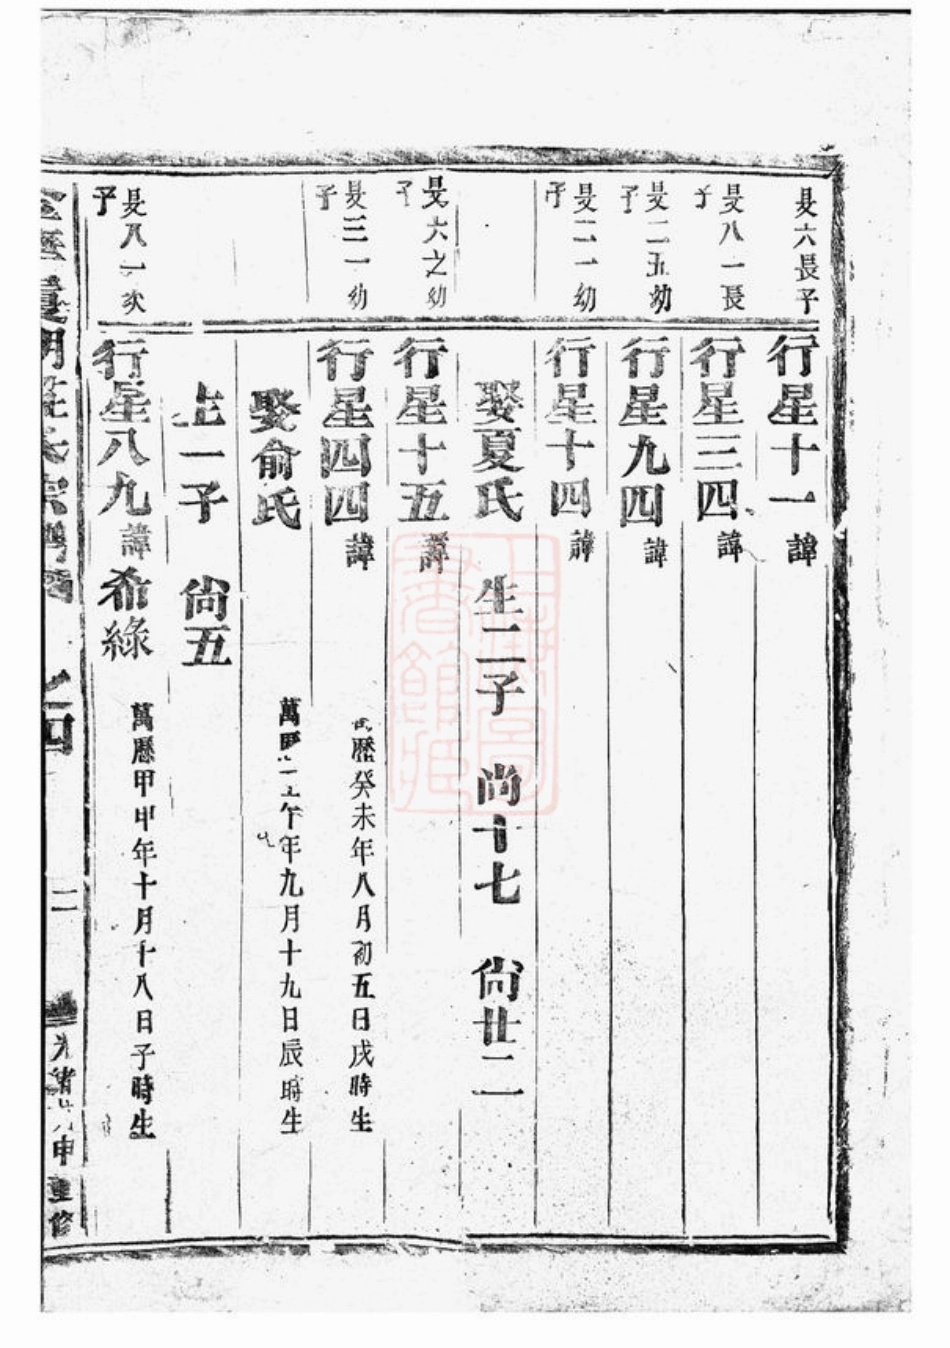 旻六長子
行星十一 諱
旻八一長子
行星三四 諱
旻二五幼子
行星九四 諱
旻二一幼子
行星十四 諱
娶夏氏 生二子 尚十七 尚廿二
旻六之幼子
行星十五 諱
旻三一幼子
行星四四 諱 歷癸未年八月初五日戌時生
娶俞氏 萬歷午年九月十九日辰時生
生一子 尚五
旻八一次子
行星八九 諱 希綠 萬歷甲申年十月十八日子時生
四
二
光緒申重修